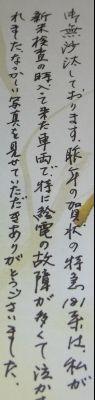 御無沙汰しております。昨年の賀状の特急181系は、私が
新米検査の時入って来た車両で、特に給電の故障が多くて泣かさ
れました。なつかしい写真を見せていただきありがとうございました。